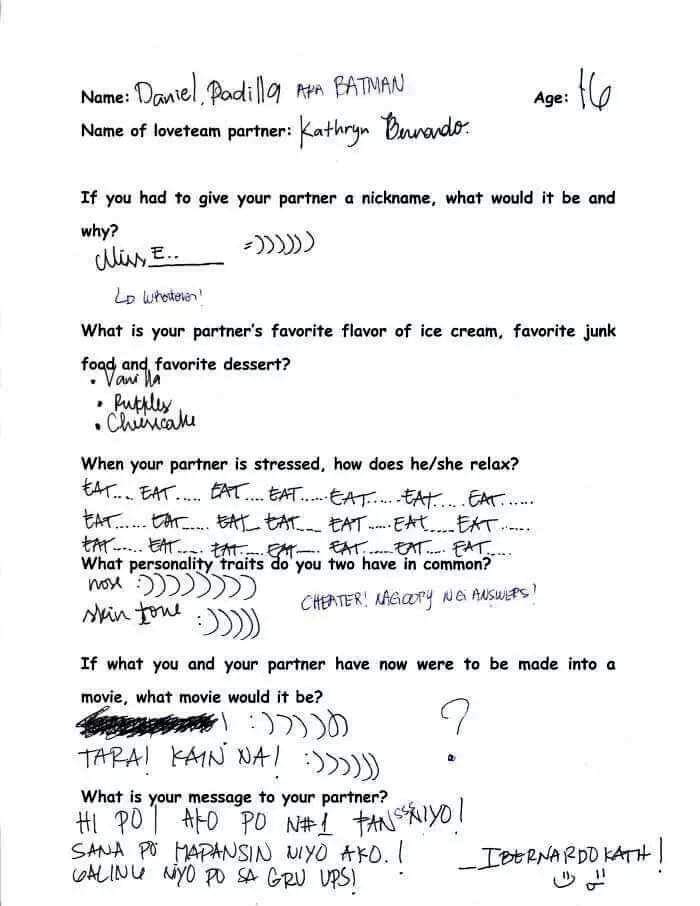 Name: Daniel Padilla AKA BATMAN Age: 16
Name of loveteam partner: Kathryn Bernardo.
If you had to give your partner a nickname, what would it be and
why?
Miss E.. =))))))
whatever!
What is your partner's favorite flavor of ice cream, favorite junk
food and favorite dessert?
• Vanilla
• Ruffles
• Cheesecake
When your partner is stressed, how does he/she relax?
EAT.... EAT..... EAT.... EAT...... EAT...... EAT..... EAT......
EAT...... EAT..... EAT.. EAT.... EAT ..... EAT.... EAT......
EAT...... EAT..... EAT.... EAT.... EAT..... EAT.... EAT.....
What personality traits do you two have in common?
nose :))))))))
skin tone :)))))
CHEATER! NAGCOPY NG ANSWERS!
If what you and your partner have now were to be made into a
movie, what movie would it be?
! :)))))) ?
TARA! KAIN NA! :))))))
What is your message to your partner?
HI PO! AKO PO N#1 FANSSS NIYO!
SANA PO MAPANSIN NIYO AKO.!
GALING NIYO PO SA GRU UPS!
_IBERNARDOKATH!